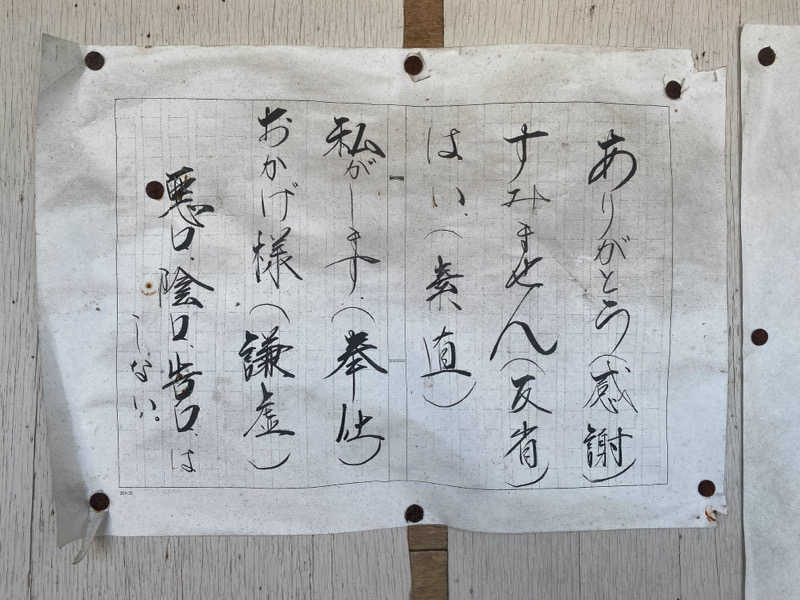 ありがとう(感謝)
すみません(反省)
はい、(素直)
私がします、(奉仕)
おかげ様(謙虚)
悪口、陰口、告口、は
しない。